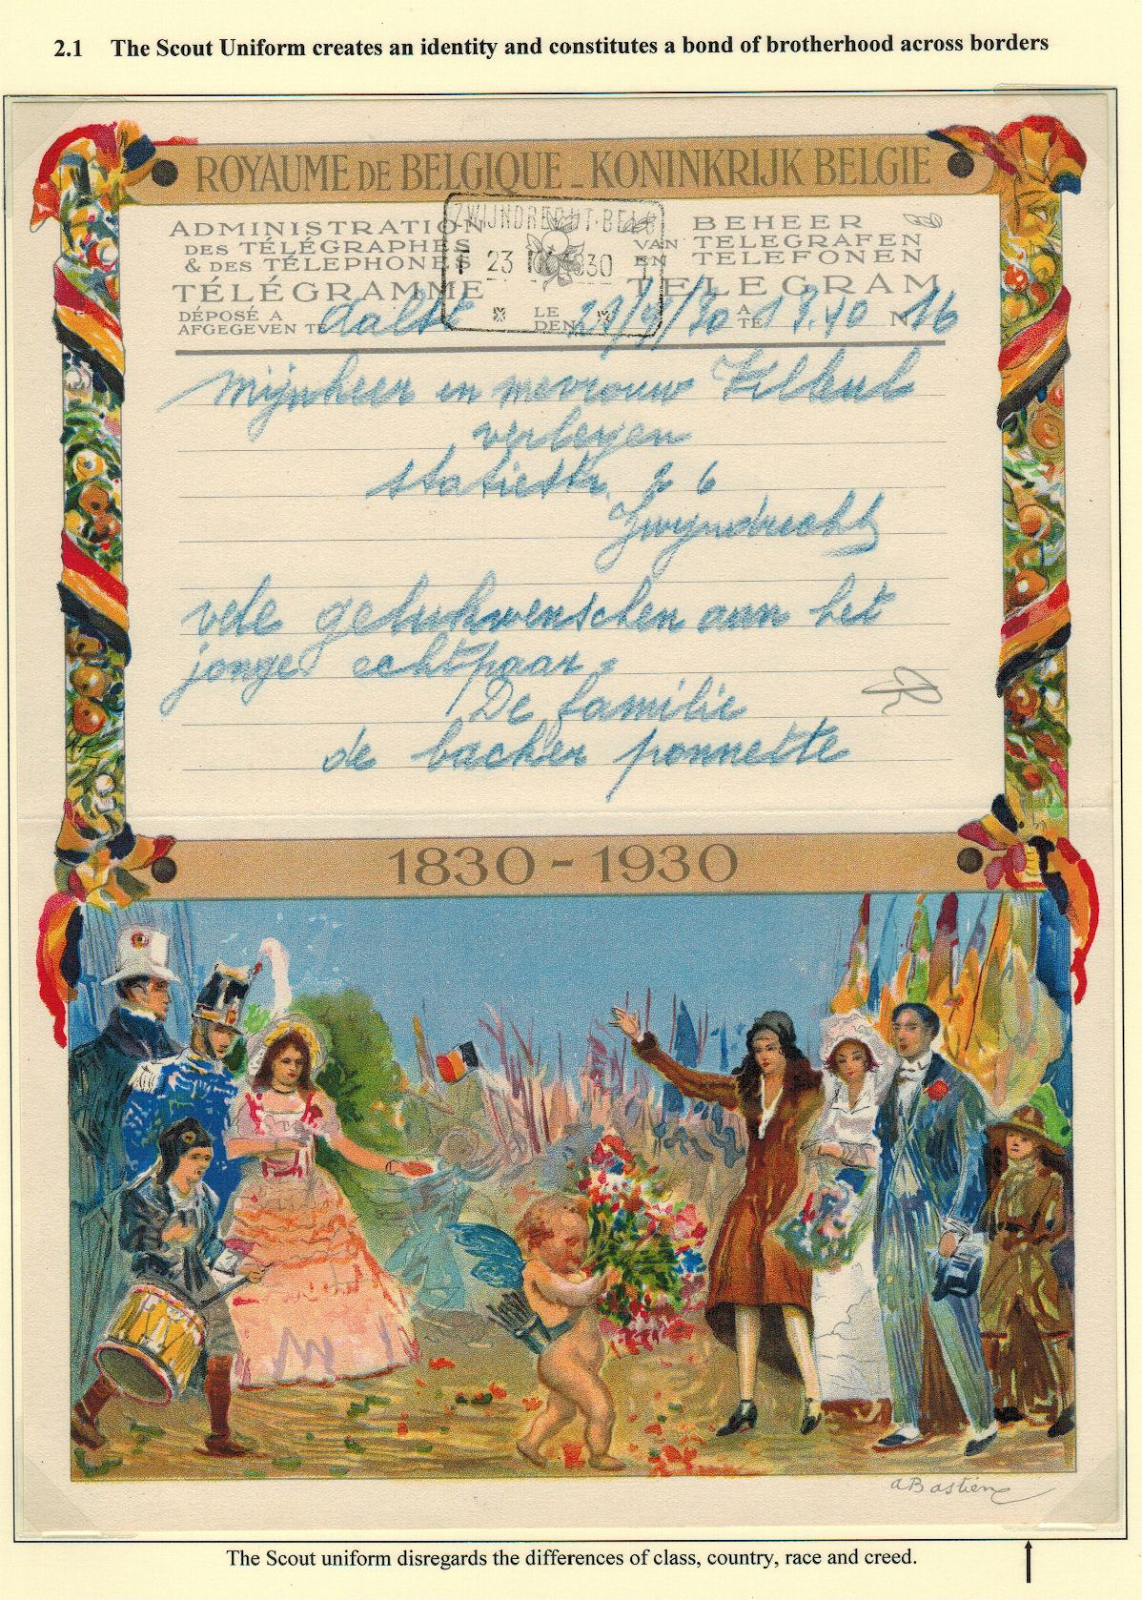 2.1 The Scout Uniform creates an identity and constitutes a bond of brotherhood across borders
ROYAUME DE BELGIQUE _ KONINKRIJK BELGIE
ADMINISTRATION
DES TÉLÉGRAPHES
& DES TÉLEPHONES
TÉLÉGRAMME
ZWIJNDRECHT-BELG
23 1930
BEHEER
VAN TELEGRAFEN
EN TELEFONEN
TELEGRAM
DÉPOSÉ A
AFGEGEVEN TE aalst
LE
DEN 23/4/30
A
TE 13.40 N 16
Mijnheer en mevrouw
verleyen
statiestr. 26
Zwyndrecht
vele gelukwenschen aan het
jonge echtpaar =
De familie
de backer ponnette
1830 - 1930
aBastien
The Scout uniform disregards the differences of class, country, race and creed.